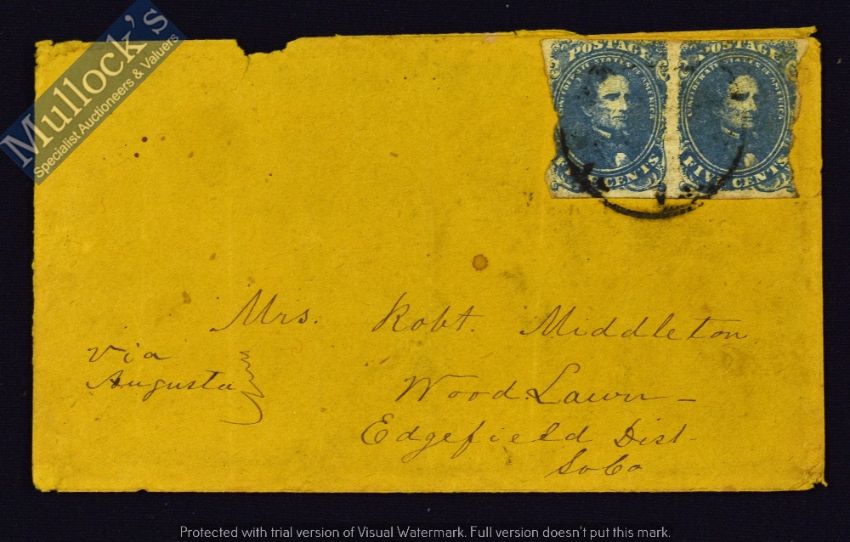 Mullock's
Specialist Auctioneers & Valuers
POSTAGE
CONFEDERATE STATES OF AMERICA
FIVE CENTS
POSTAGE
CONFEDERATE STATES OF AMERICA
FIVE CENTS
Mrs. Robt. Middleton
Via
Augusta
Wood Lawn -
Edgefield Dist.
So Ca
Protected with trial version of Visual Watermark. Full version doesn't put this mark.